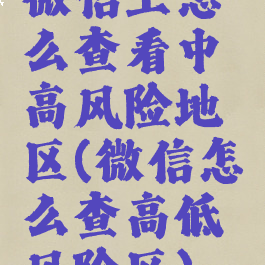 微信上怎
么查看中
高风险地
区(微信怎
么查高低
风险区)